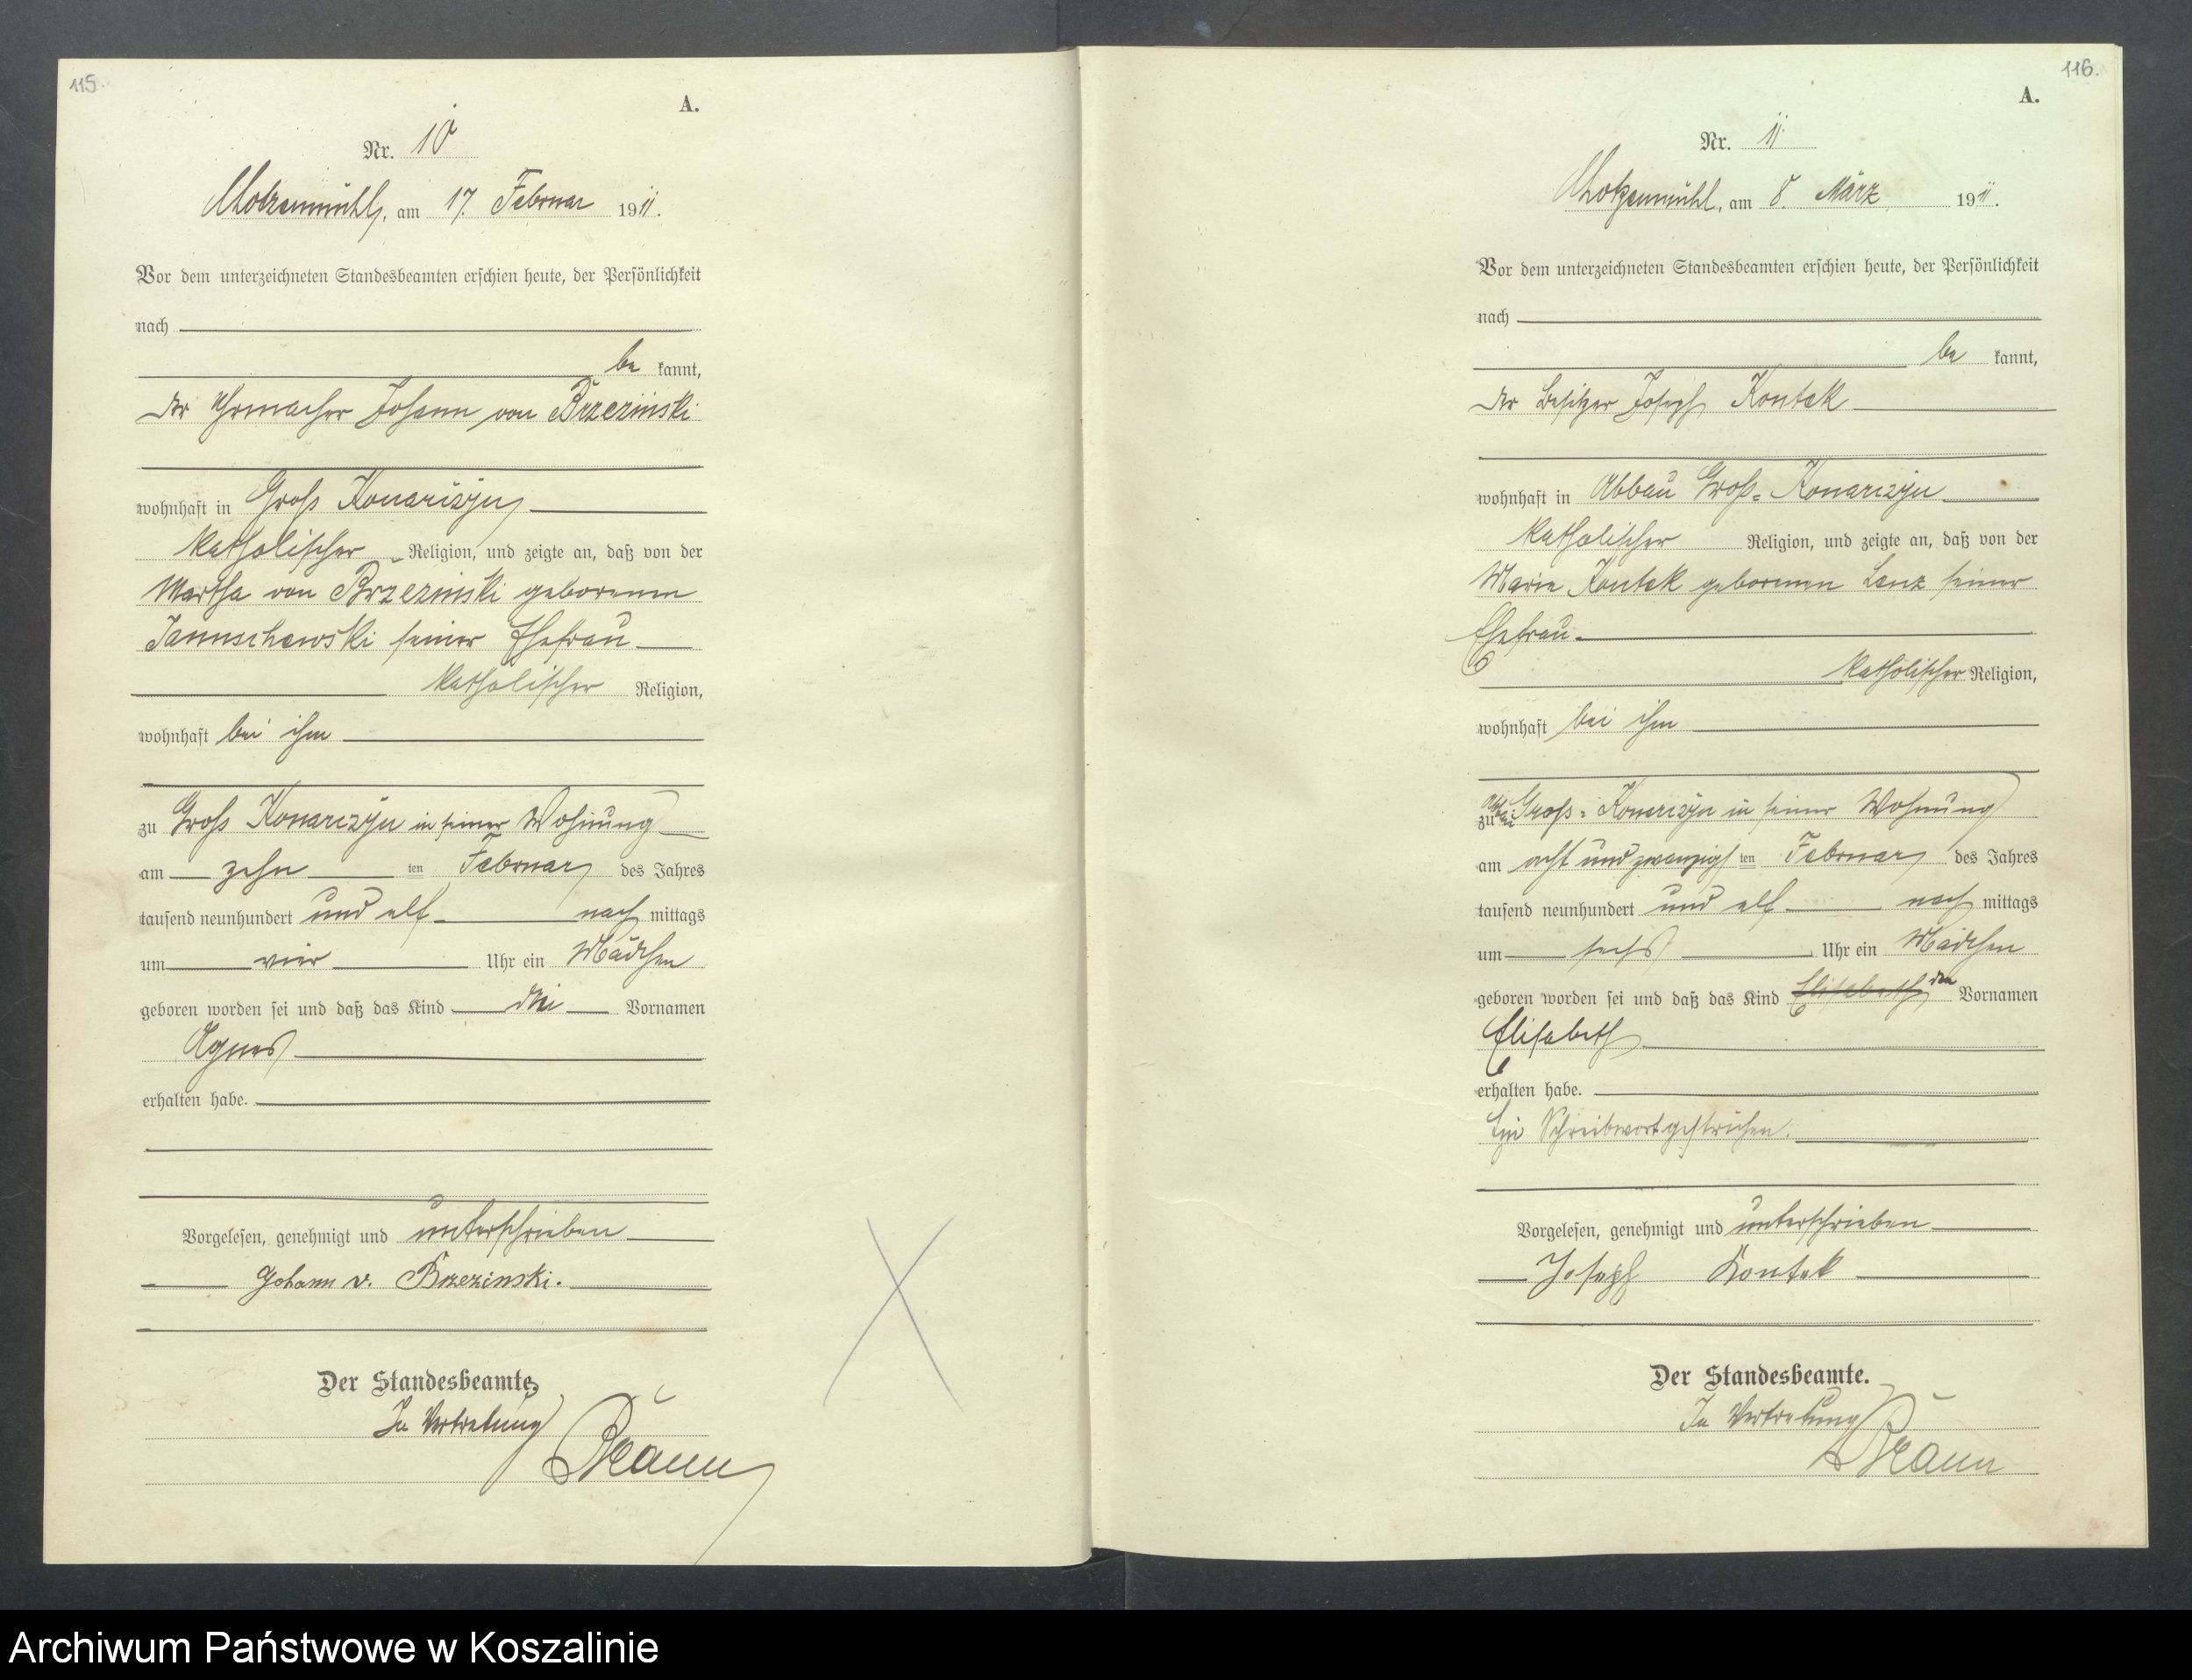 115.
A.
Nr. 10
Chotzenmühl, am 17. Februar 1911.
Vor dem unterzeichneten Standesbeamten erschien heute, der Persönlichkeit
nach
be kannt,
der Uhrmacher Johann von Brzezinski
wohnhaft in Groß Konarczyn
katholischer Religion, und zeigte an, daß von der
Martha von Brzezinski geborenen
Januschewski seiner Ehefrau
katholischer Religion,
wohnhaft bei ihm
zu Groß Konarczyn in seiner Wohnung
am zehn ten Februar des Jahres
tausend neunhundert und elf nach mittags
um vier Uhr ein Mädchen
geboren worden sei und daß das Kind die Vornamen
Agnes
erhalten habe.
Vorgelesen, genehmigt und unterschrieben
Johann v. Brzezinski.
Der Standesbeamte.
In Vertretung
116.
A.
Nr. 11
Chotzenmühl, am 8. März 1911.
Vor dem unterzeichneten Standesbeamten erschien heute, der Persönlichkeit
nach
be kannt,
der Besitzer Joseph Kontek
wohnhaft in Abbau Groß-Konarczyn
katholischer Religion, und zeigte an, daß von der
Marie Kontek geborenen Lenz seiner
Ehefrau
katholischer Religion,
wohnhaft bei ihm
zu Abbau Groß-Konarczyn in seiner Wohnung
am acht und zwanzig ten Februar des Jahres
tausend neunhundert und elf nach mittags
um sechs Uhr ein Mädchen
geboren worden sei und daß das Kind Elisabeth den Vornamen
Elisabeth
erhalten habe.
Ein Schreibwort gestrichen.
Vorgelesen, genehmigt und unterschrieben
Joseph Kontek
Der Standesbeamte.
In Vertretung
Archiwum Państwowe w Koszalinie